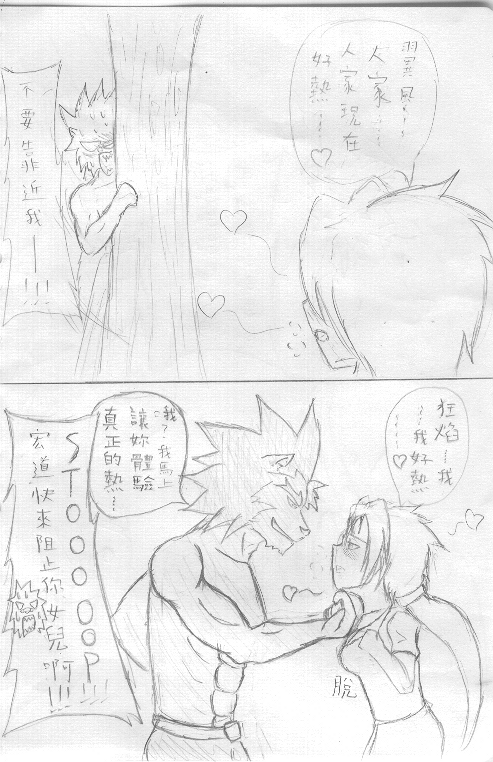 風~~~
人家……
人家現在
好熱……♡
不要靠近我——!!!
狂焰……我
……我好熱♡
哦?我馬上
讓妳體驗
真正的熱……
脫
STOOOOOP!!!
宏道快來阻止你女兒啊!!!